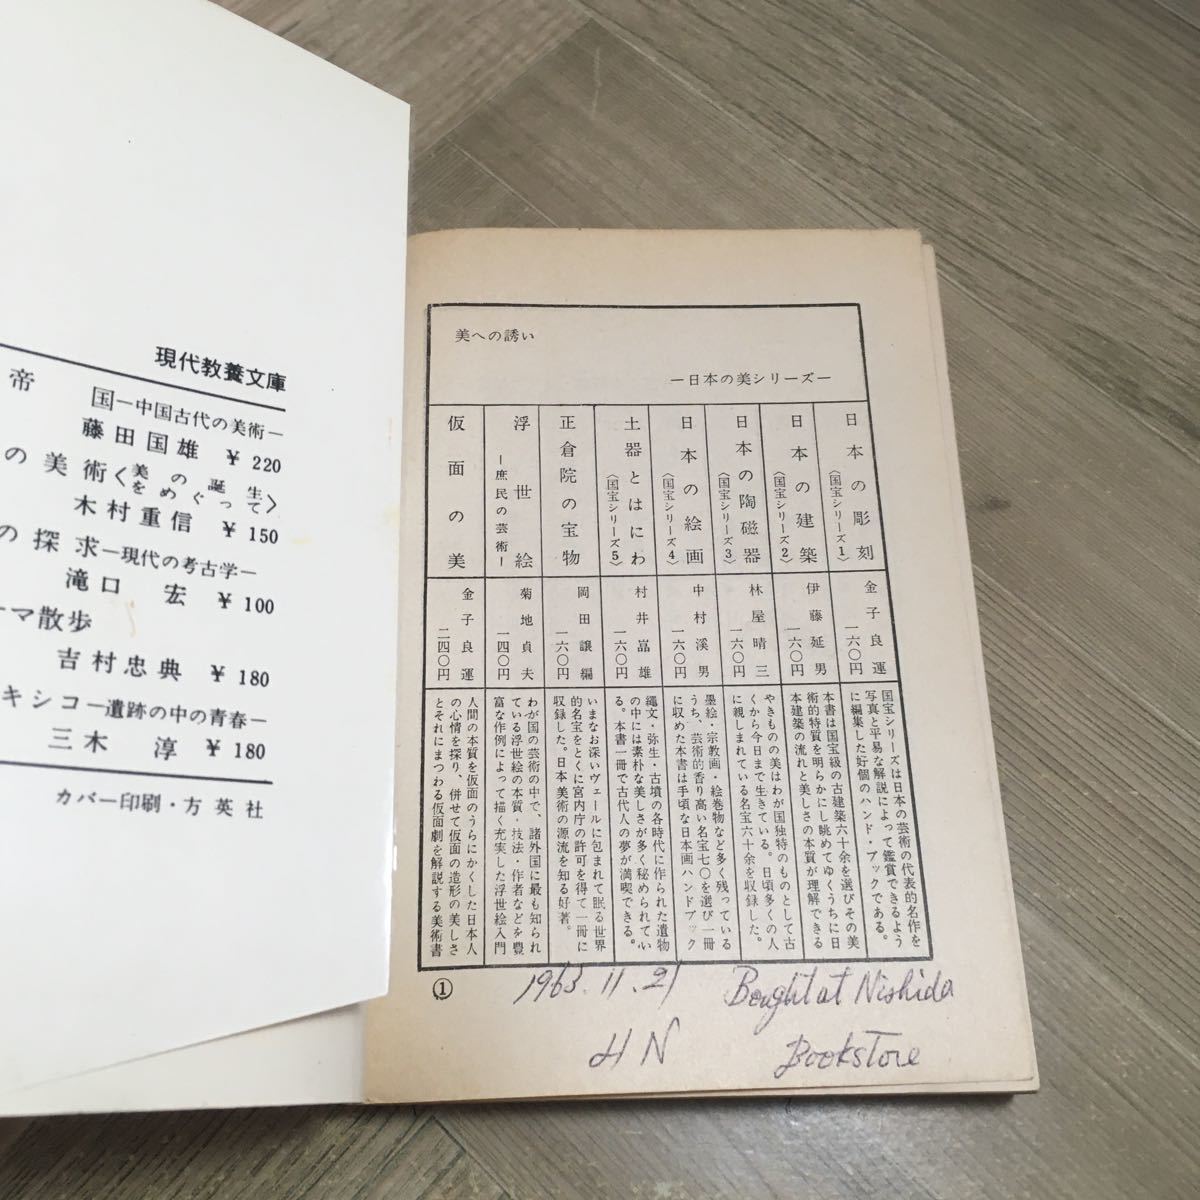 現代教養文庫
帝　国―中国古代の美術―
藤田国雄 ¥ 220
の美術〈美の誕生をめぐって〉
木村重信 ¥ 150
の探求―現代の考古学―
滝口　宏 ¥ 100
マ散歩
吉村忠典 ¥ 180
キシコ―遺跡の中の青春―
三木　淳 ¥ 180
カバー印刷・方英社
美への誘い
―日本の美シリーズ―
日本の彫刻〈国宝シリーズ1〉
金子良運
一六〇円
国宝シリーズは日本の芸術の代表的名作を
写真と平易な解説によって鑑賞できるよう
に編集した好個のハンド・ブックである。
日本の建築〈国宝シリーズ2〉
伊藤延男
一六〇円
本書は国宝級の古建築六十余を選びその美
術的特質を明らかにし眺めてゆくうちに日
本建築の流れと美しさの本質が理解できる
日本の陶磁器〈国宝シリーズ3〉
林屋晴三
一六〇円
やきものの美はわが国独特のものとして古
くから今日まで生きている。日頃多くの人
に親しまれている名宝六十余を収録した。
日本の絵画〈国宝シリーズ4〉
中村溪男
一六〇円
墨絵・宗教画・絵巻物など多く残っている
うち、芸術的香り高い名宝七〇を選び一冊
に収めた本書は手頃な日本画ハンドブック
土器とはにわ〈国宝シリーズ5〉
村井嵓雄
一六〇円
縄文・弥生・古墳の各時代に作られた遺物
の中には素朴な美しさが多く秘められてい
る。本書一冊で古代人の夢が満喫できる。
正倉院の宝物
岡田譲編
一六〇円
いまなお深いヴェールに包まれて眠る世界
的名宝をとくに宮内庁の許可を得て一冊に
収録した。日本美術の源流を知る好著。
浮世絵―庶民の芸術―
菊地貞夫
一四〇円
わが国の芸術の中で、諸外国に最も知られ
ている浮世絵の本質・技法・作者などを豊
富な作例によって描く充実した浮世絵入門
仮面の美
金子良運
二四〇円
人間の本質を仮面のうらにかくした日本人
の心情を探り、併せて仮面の造形の美しさ
とそれにまつわる仮面劇を解説する美術書
①
1963.11.21 Bought at Nishida
HN Bookstore